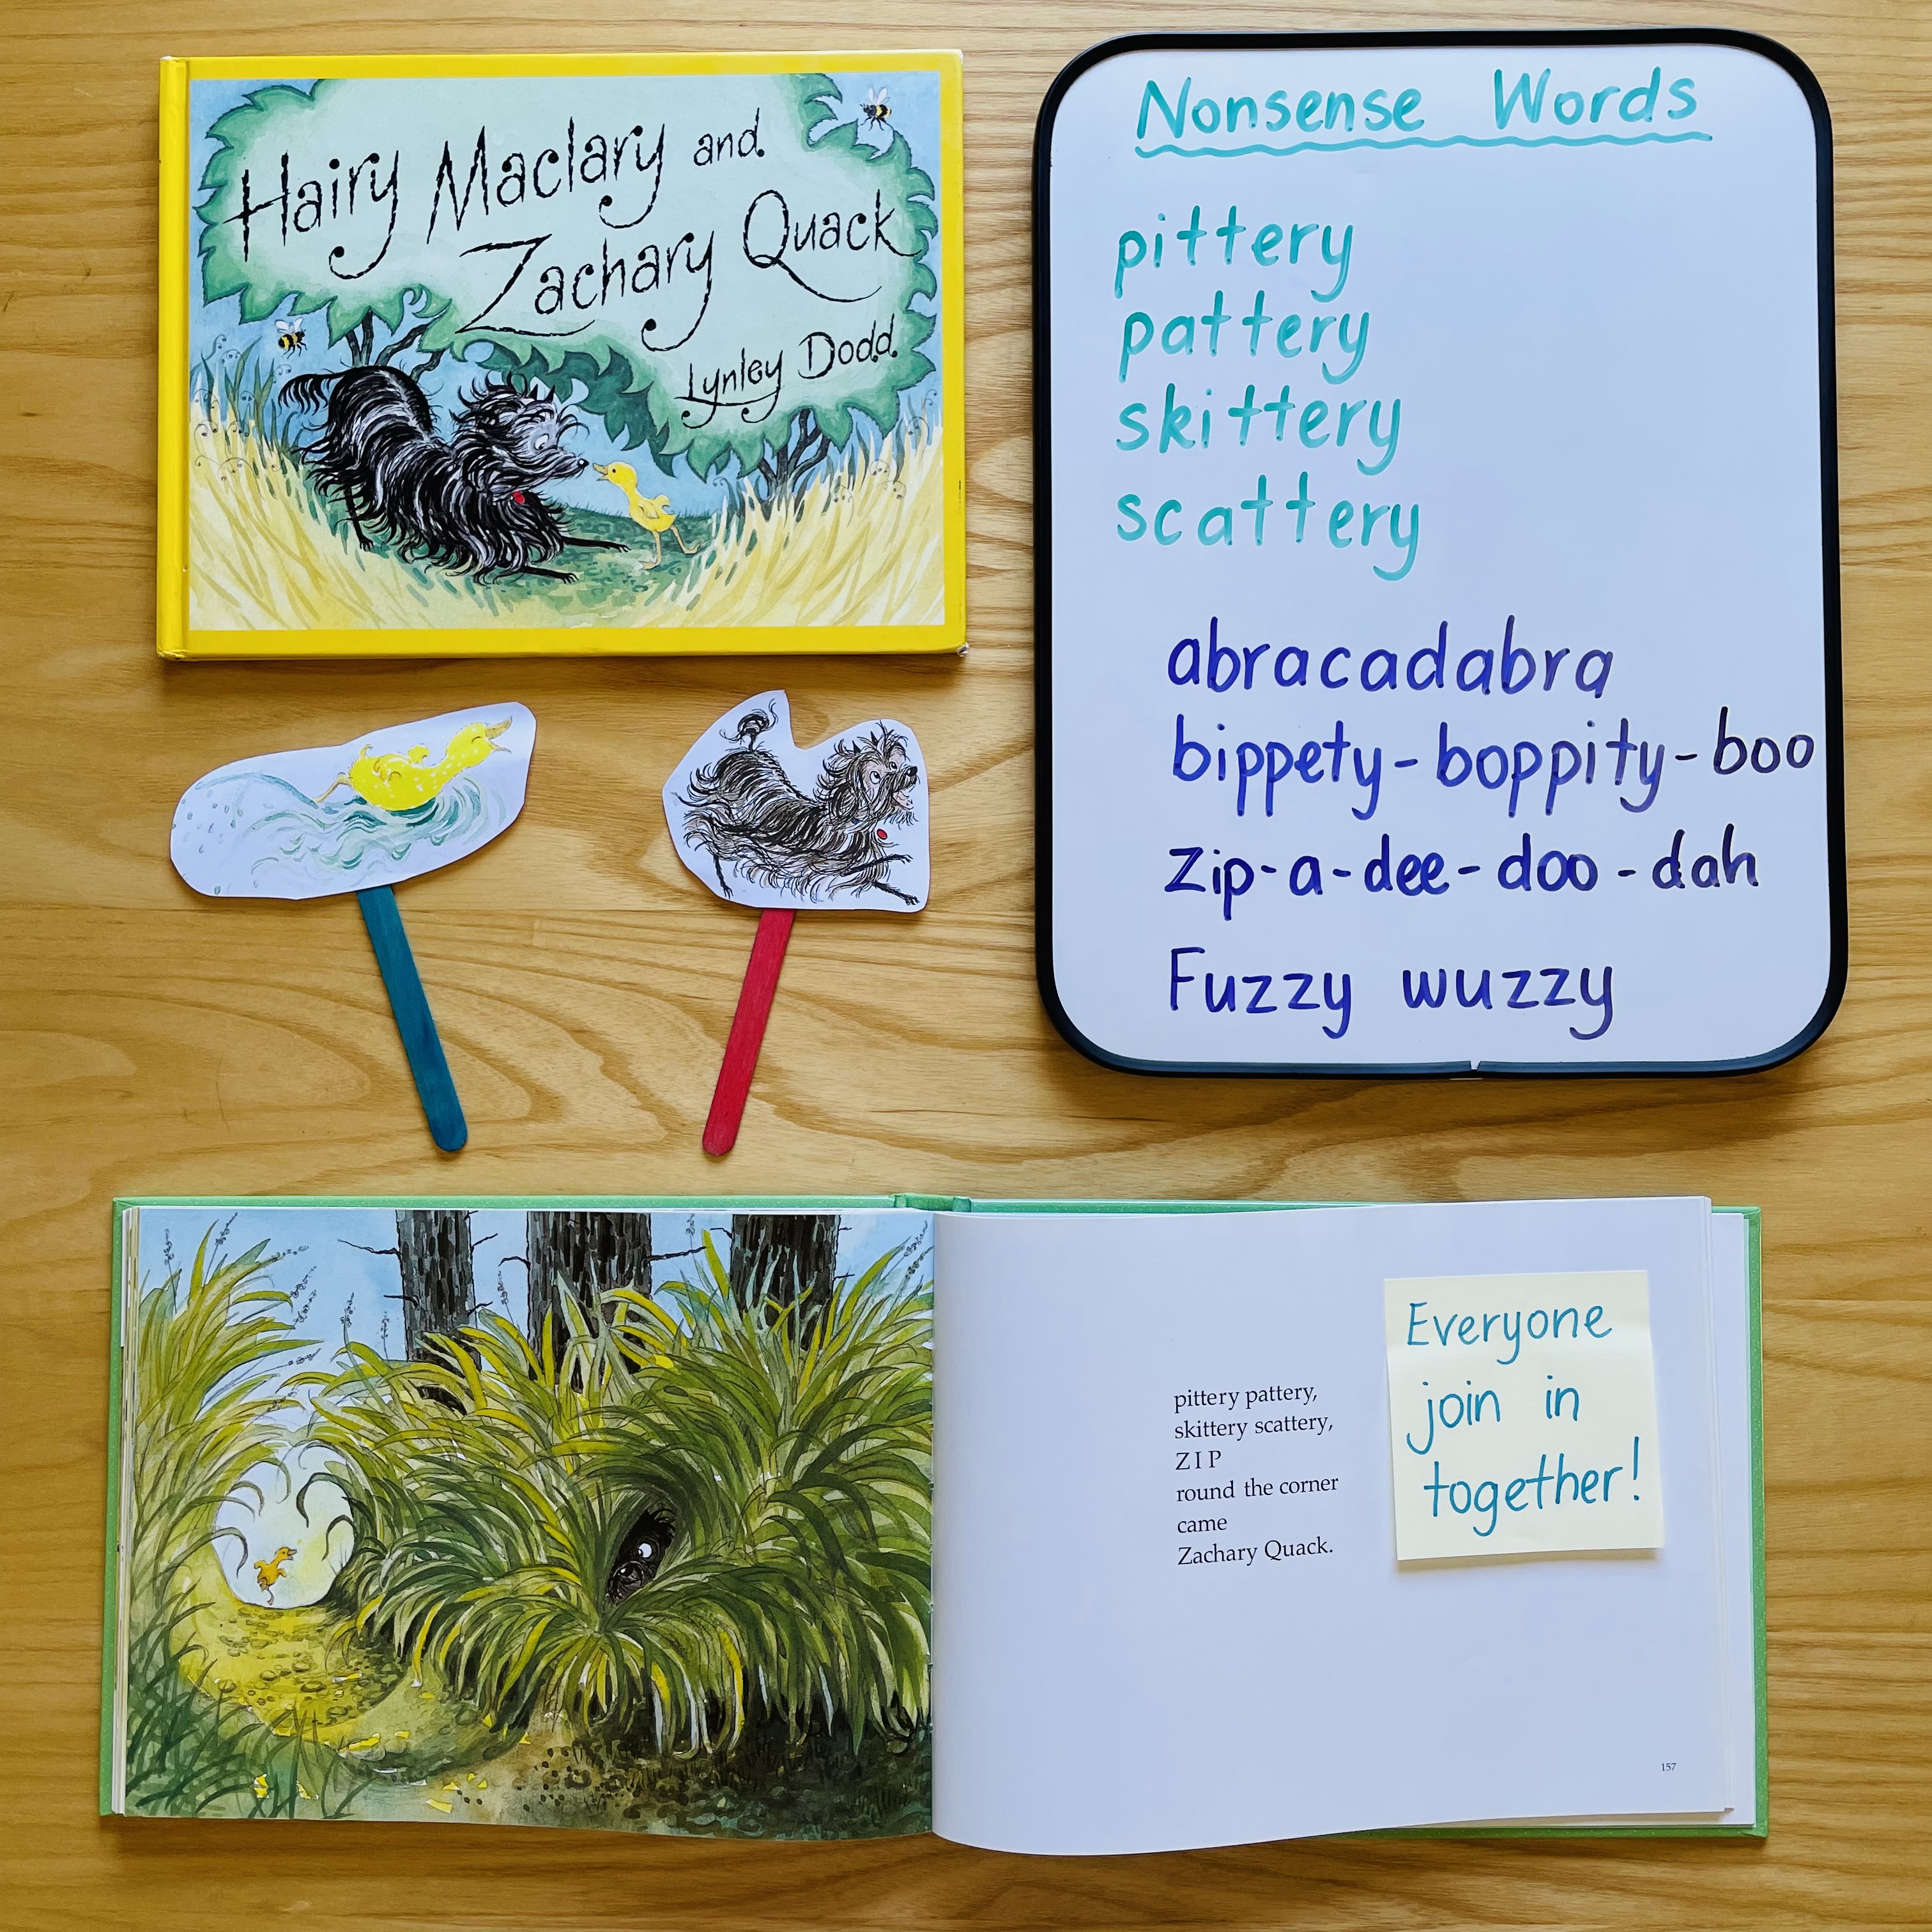 Hairy Maclary and
Zachary Quack
Lynley Dodd
Nonsense Words
pittery
pattery
skittery
scattery
abracadabra
bippety-boppity-boo
zip-a-dee-doo-dah
Fuzzy wuzzy
pittery pattery,
skittery scattery,
ZIP
round the corner
came
Zachary Quack.
Everyone
join in
together!
157